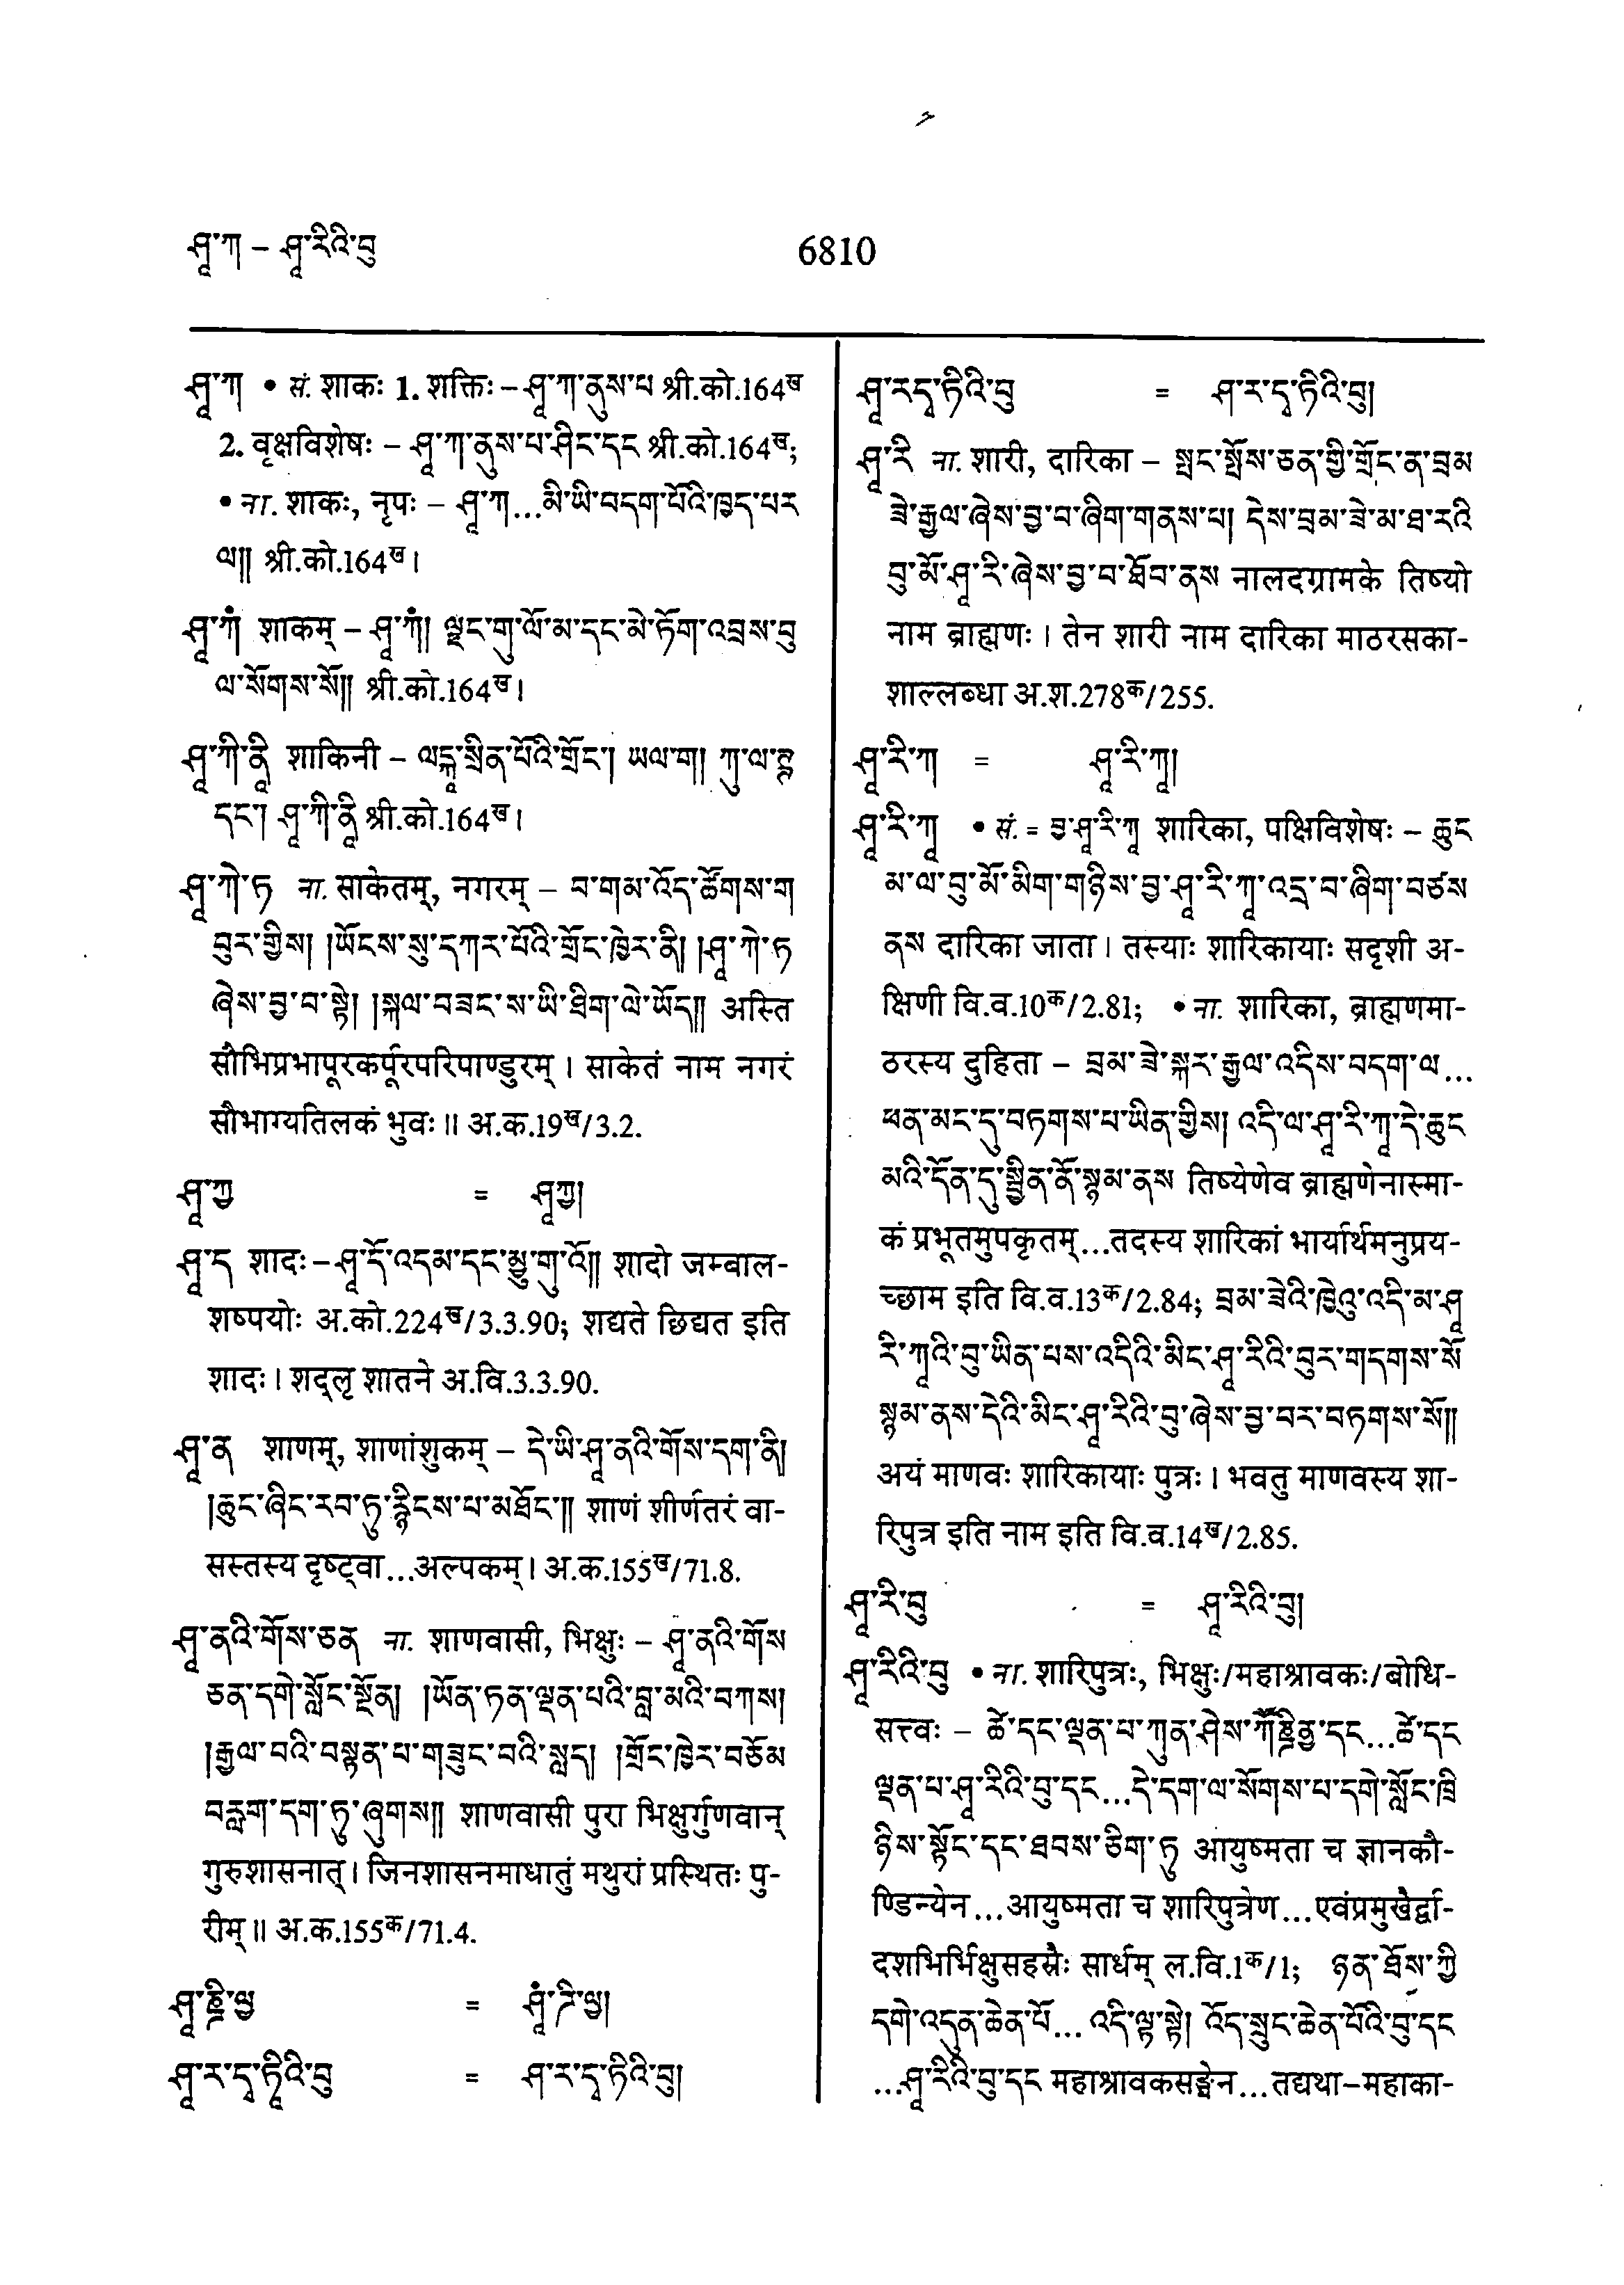 ཤཱ་ཀ – ཤཱ་རིའི་བུ
6810
ཤཱ་ཀ • सं. शाकः 1. शक्तिः – ཤཱ་ཀ་ནུས་པ श्री.को.164ख
2. वृक्षविशेषः – ཤཱ་ཀ་ནུས་པ་ཤིང་དང श्री.को.164ख;
• ना. शाकः, नृपः – ཤཱ་ཀ...མི་ཡི་བདག་པོའི་ཁྱད་པར
ལ༎ श्री.को.164ख।
ཤཱ་ཀཾ शाकम् – ཤཱ་ཀཾ། ལྗང་གུ་ལོ་མ་དང་མེ་ཏོག་འབྲས་བུ
ལ་སོགས་སོ༎ श्री.को.164ख।
ཤཱ་ཀི་ནཱི शाकिनी – ལངྐཱ་སྲིན་པོའི་གྲོང་། ཡལ་ག། ཀུ་ལ་ཊཱ
དང་། ཤཱ་ཀི་ནཱི श्री.को.164ख।
ཤཱ་ཀེ་ཏ ना. साकेतम्, नगरम् – བ་གམ་འོད་ཚོགས་ག
བུར་གྱིས། །ཡོངས་སུ་དཀར་པོའི་གྲོང་ཁྱེར་ནི། །ཤཱ་ཀེ་ཏ
ཞེས་བྱ་བ་སྟེ། །སྐལ་བཟང་ས་ཡི་ཐིག་ལེ་ཡོད༎ अस्ति
सौभिप्रभापूरकर्पूरपरिपाण्डुरम्। साकेतं नाम नगरं
सौभाग्यतिलकं भुवः॥ अ.क.19ख/3.2.
ཤཱ་ཀྱ = ཤཱཀྱ།
ཤཱ་ད शादः – ཤཱ་དོ་འདམ་དང་མྱུ་གུ་འོ༎ शादो जम्बाल-
शष्पयोः अ.को.224ख/3.3.90; शद्यते छिद्यत इति
शादः। शद्लृ शातने अ.वि.3.3.90.
ཤཱ་ན शाणम्, शाणांशुकम् – དེ་ཡི་ཤཱ་ནའི་གོས་དག་ནི།
།ཆུང་ཞིང་རབ་ཏུ་རྙིངས་པ་མཐོང་༎ शाणं शीर्णतरं वा-
सस्तस्य दृष्ट्वा...अल्पकम्। अ.क.155ख/71.8.
ཤཱ་ནའི་གོས་ཅན ना. शाणवासी, भिक्षुः – ཤཱ་ནའི་གོས
ཅན་དགེ་སློང་སྔོན། །ཡོན་ཏན་ལྡན་པའི་བླ་མའི་བཀས།
།རྒྱལ་བའི་བསྟན་པ་གཟུང་བའི་སླད། །གྲོང་ཁྱེར་བཅོམ
བརླག་དག་ཏུ་ཞུགས༎ शाणवासी पुरा भिक्षुर्गुणवान्
गुरुशासनात्। जिनशासनमाधातुं मथुरां प्रस्थितः पु-
रीम्॥ अ.क.155क/71.4.
= ཤཱཾ་ཌི་ལྱ།
ཤཱ་ར་དྭ་ཏཱིའི་བུ = ཤ་ར་དྭ་ཏིའི་བུ།
ཤཱ་རདྭ་ཏིའི་བུ = ཤ་ར་དྭ་ཏིའི་བུ།
ཤཱ་རི ना. शारी, दारिका – སྤྲང་སྤོས་ཅན་གྱི་གྲོང་ན་བྲམ
ཟེ་རྒྱལ་ཞེས་བྱ་བ་ཞིག་གནས་པ། དེས་བྲམ་ཟེ་མ་ཐ་རའི
བུ་མོ་ཤཱ་རི་ཞེས་བྱ་བ་ཐོབ་ནས नालदग्रामके तिष्यो
नाम ब्राह्मणः। तेन शारी नाम दारिका माठरसका-
शाल्लब्धा अ.श.278क/255.
ཤཱ་རི་ཀ = ཤཱ་རི་ཀཱ།
ཤཱ་རི་ཀཱ • सं. = བྱ་ཤཱ་རི་ཀཱ शारिका, पक्षिविशेषः – ཆུང
མ་ལ་བུ་མོ་མིག་གཉིས་བྱ་ཤཱ་རི་ཀཱ་འདྲ་བ་ཞིག་བཙས
ནས दारिका जाता। तस्याः शारिकायाः सदृशी अ-
क्षिणी वि.व.10क/2.81; • ना. शारिका, ब्राह्मणमा-
ठरस्य दुहिता – བྲམ་ཟེ་སྐར་རྒྱལ་འདིས་བདག་ལ...
ཕན་མང་དུ་བཏགས་པ་ཡིན་གྱིས། འདི་ལ་ཤཱ་རི་ཀཱ་དེ་ཆུང
མའི་དོན་དུ་སྦྱིན་ནོ་སྙམ་ནས तिष्येणेव ब्राह्मणेनास्मा-
कं प्रभूतमुपकृतम्...तदस्य शारिकां भार्यार्थमनुप्रय-
च्छाम इति वि.व.13क/2.84; བྲམ་ཟེའི་ཁྱེའུ་འདི་མ་ཤཱ
རི་ཀཱའི་བུ་ཡིན་པས་འདིའི་མིང་ཤཱ་རིའི་བུར་གདགས་སོ
སྙམ་ནས་དེའི་མིང་ཤཱ་རིའི་བུ་ཞེས་བྱ་བར་བཏགས་སོ༎
अयं माणवः शारिकायाः पुत्रः। भवतु माणवस्य शा-
रिपुत्र इति नाम इति वि.व.14ख/2.85.
ཤཱ་རི་བུ = ཤཱ་རིའི་བུ།
ཤཱ་རིའི་བུ • ना. शारिपुत्रः, भिक्षुः/महाश्रावकः/बोधि-
सत्त्वः – ཚེ་དང་ལྡན་པ་ཀུན་ཤེས་ཀཽཎྜིནྱ་དང...ཚེ་དང
ལྡན་པ་ཤཱ་རིའི་བུ་དང...དེ་དག་ལ་སོགས་པ་དགེ་སློང་ཁྲི
ཉིས་སྟོང་དང་ཐབས་ཅིག་ཏུ आयुष्मता च ज्ञानकौ-
ण्डिन्येन...आयुष्मता च शारिपुत्रेण...एवंप्रमुखैर्द्वा-
दशभिर्भिक्षुसहस्रैः सार्धम् ल.वि.1क/1; ཉན་ཐོས་ཀྱི
དགེ་འདུན་ཆེན་པོ...འདི་ལྟ་སྟེ། འོད་སྲུང་ཆེན་པོའི་བུ་དང
...ཤཱ་རིའི་བུ་དང महाश्रावकसङ्घेन...तद्यथा–महाका-